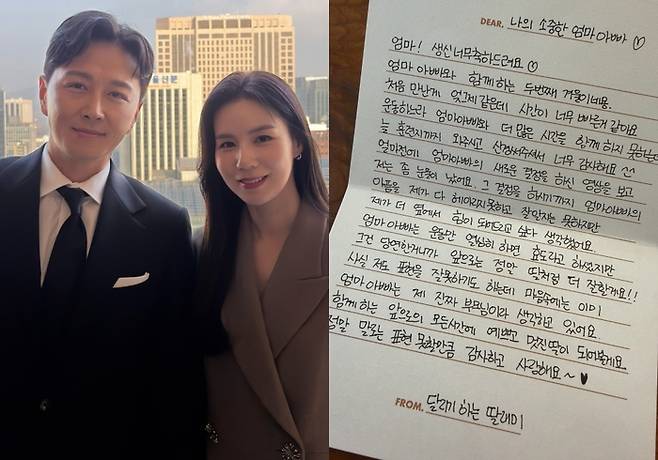 울신문
DEAR. 나의 소중한 엄마아빠 ♡
엄마! 생신너무축하드려요 ♡
엄마아빠와 함께하는 두번째 겨울이네용.
처음 만난게 엊그제같은데 시간이 너무 빠른거 같아요
운동하느라 엄마아빠와 더 많은 시간을 함께 하지 못하는데
늘 훈련지까지 와주시고 신경써주셔서 너무 감사해요 ^^
얼마전에 엄마아빠의 새로운 결정을 하신 영상을 보고
저는 좀 눈물이 났어요. 그 결정을 하시기까지 엄마아빠의
아픔을 제가 다 헤아리지못하고 잘알지는 못하지만
제가 더 옆에서 힘이 되어드리고 싶다 생각했어요
엄마아빠는 운동만 열심히 하면 효도라고 하셨지만
그건 당연한거니까 앞으로는 정말 딸처럼 더 잘할게요!!
사실 저도 표현을 잘못하기도 하는데 마음속에는 이미
엄마아빠는 제 진짜 부모님이라 생각하고 있어요
함께하는 앞으로의 모든시간에 예쁘고 멋진딸이 되어볼게요
정말 말로는 표현 못할만큼 감사하고 사랑해요~ ♥
FROM. 달리기 하는 딸래미